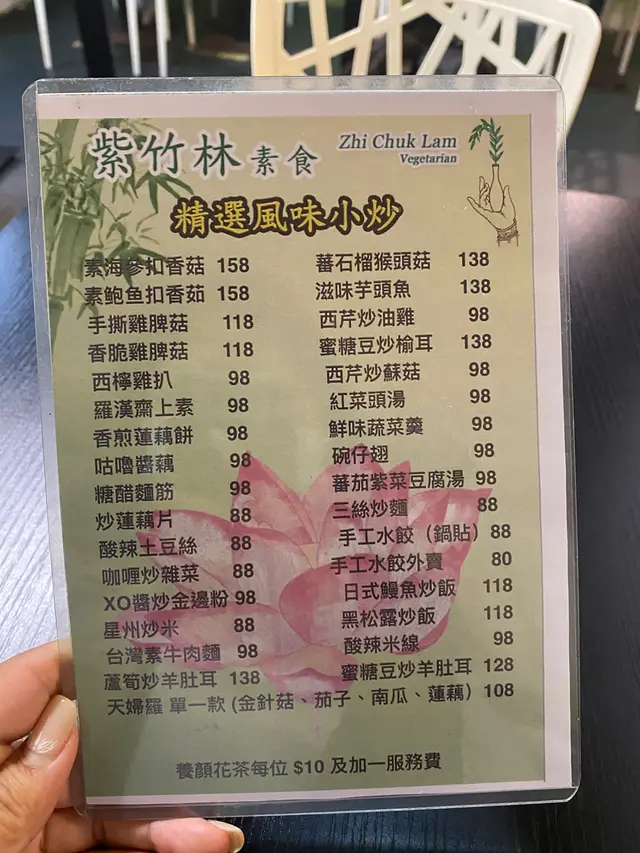 紫竹林素食
Zhi Chuk Lam
Vegetarian
精選風味小炒
素海參扣香菇 158
素鮑鱼扣香茹 158
手撕雞脾菇 118
香脆雞脾菇 118
西檸雞扒 98
羅漢齋上素 98
香煎蓮藕餅 98
咕嚕醬藕 98
糖醋麵筋 98
炒蓮藕片 88
酸辣土豆絲 88
咖喱炒雜菜 88
XO醬炒金邊粉 98
星州炒米 88
台灣素牛肉麵 98
蘆筍炒羊肚耳 138
蕃石榴猴頭菇 138
滋味芋頭魚 138
西芹炒油雞 98
蜜糖豆炒榆耳 138
西芹炒蘇菇 98
紅菜頭湯 98
鮮味蔬菜羹 98
碗仔翅 98
蕃茄紫菜豆腐湯 98
三絲炒麵 88
手工水餃（鍋貼）88
手工水餃外賣 80
日式鰻魚炒飯 118
黑松露炒飯 118
酸辣米線 98
蜜糖豆炒羊肚耳 128
天婦羅 單一款 (金針菇、茄子、南瓜、蓮藕） 108
養顏花茶每位 $10 及加一服務費